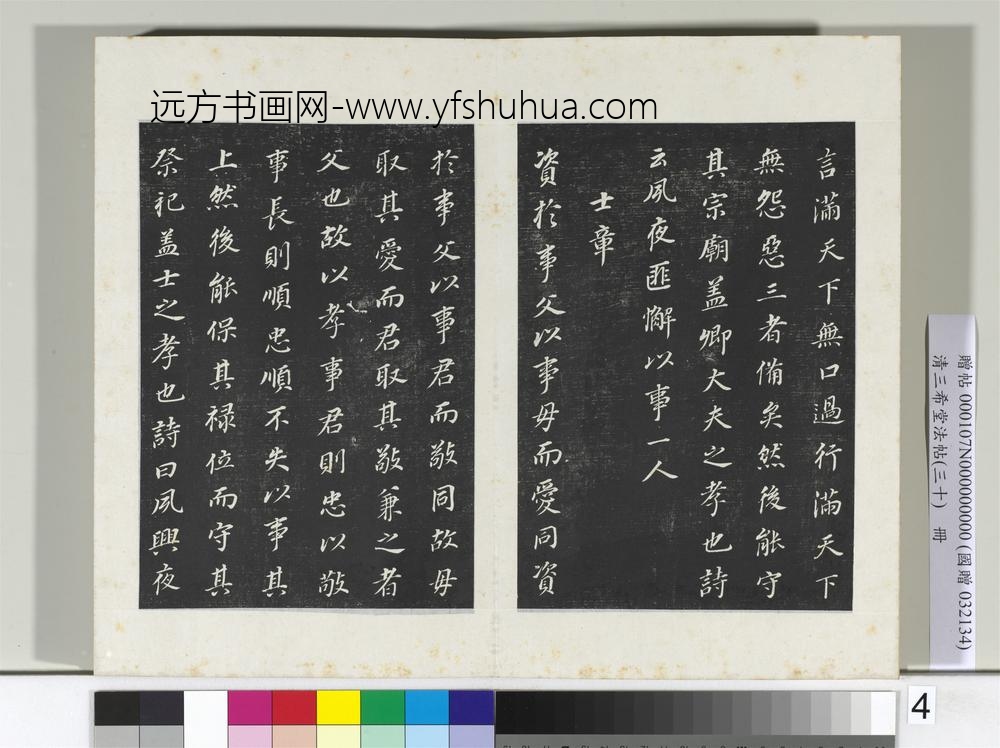 远方书画网-www.yfshuhua.com
言滿天下無口過行滿天下
無怨惡三者備矣然後能守
其宗廟盖卿大夫之孝也詩
云夙夜匪懈以事一人
士章
資於事父以事母而愛同資
於事父以事君而敬同故母
取其愛而君取其敬兼之者
父也故以孝事君則忠以敬
事長則順忠順不失以事其
上然後能保其禄位而守其
祭祀盖士之孝也詩曰夙興夜
贈帖 000107N000000000 (國贈 032134)
清三希堂法帖(三十) 冊
4